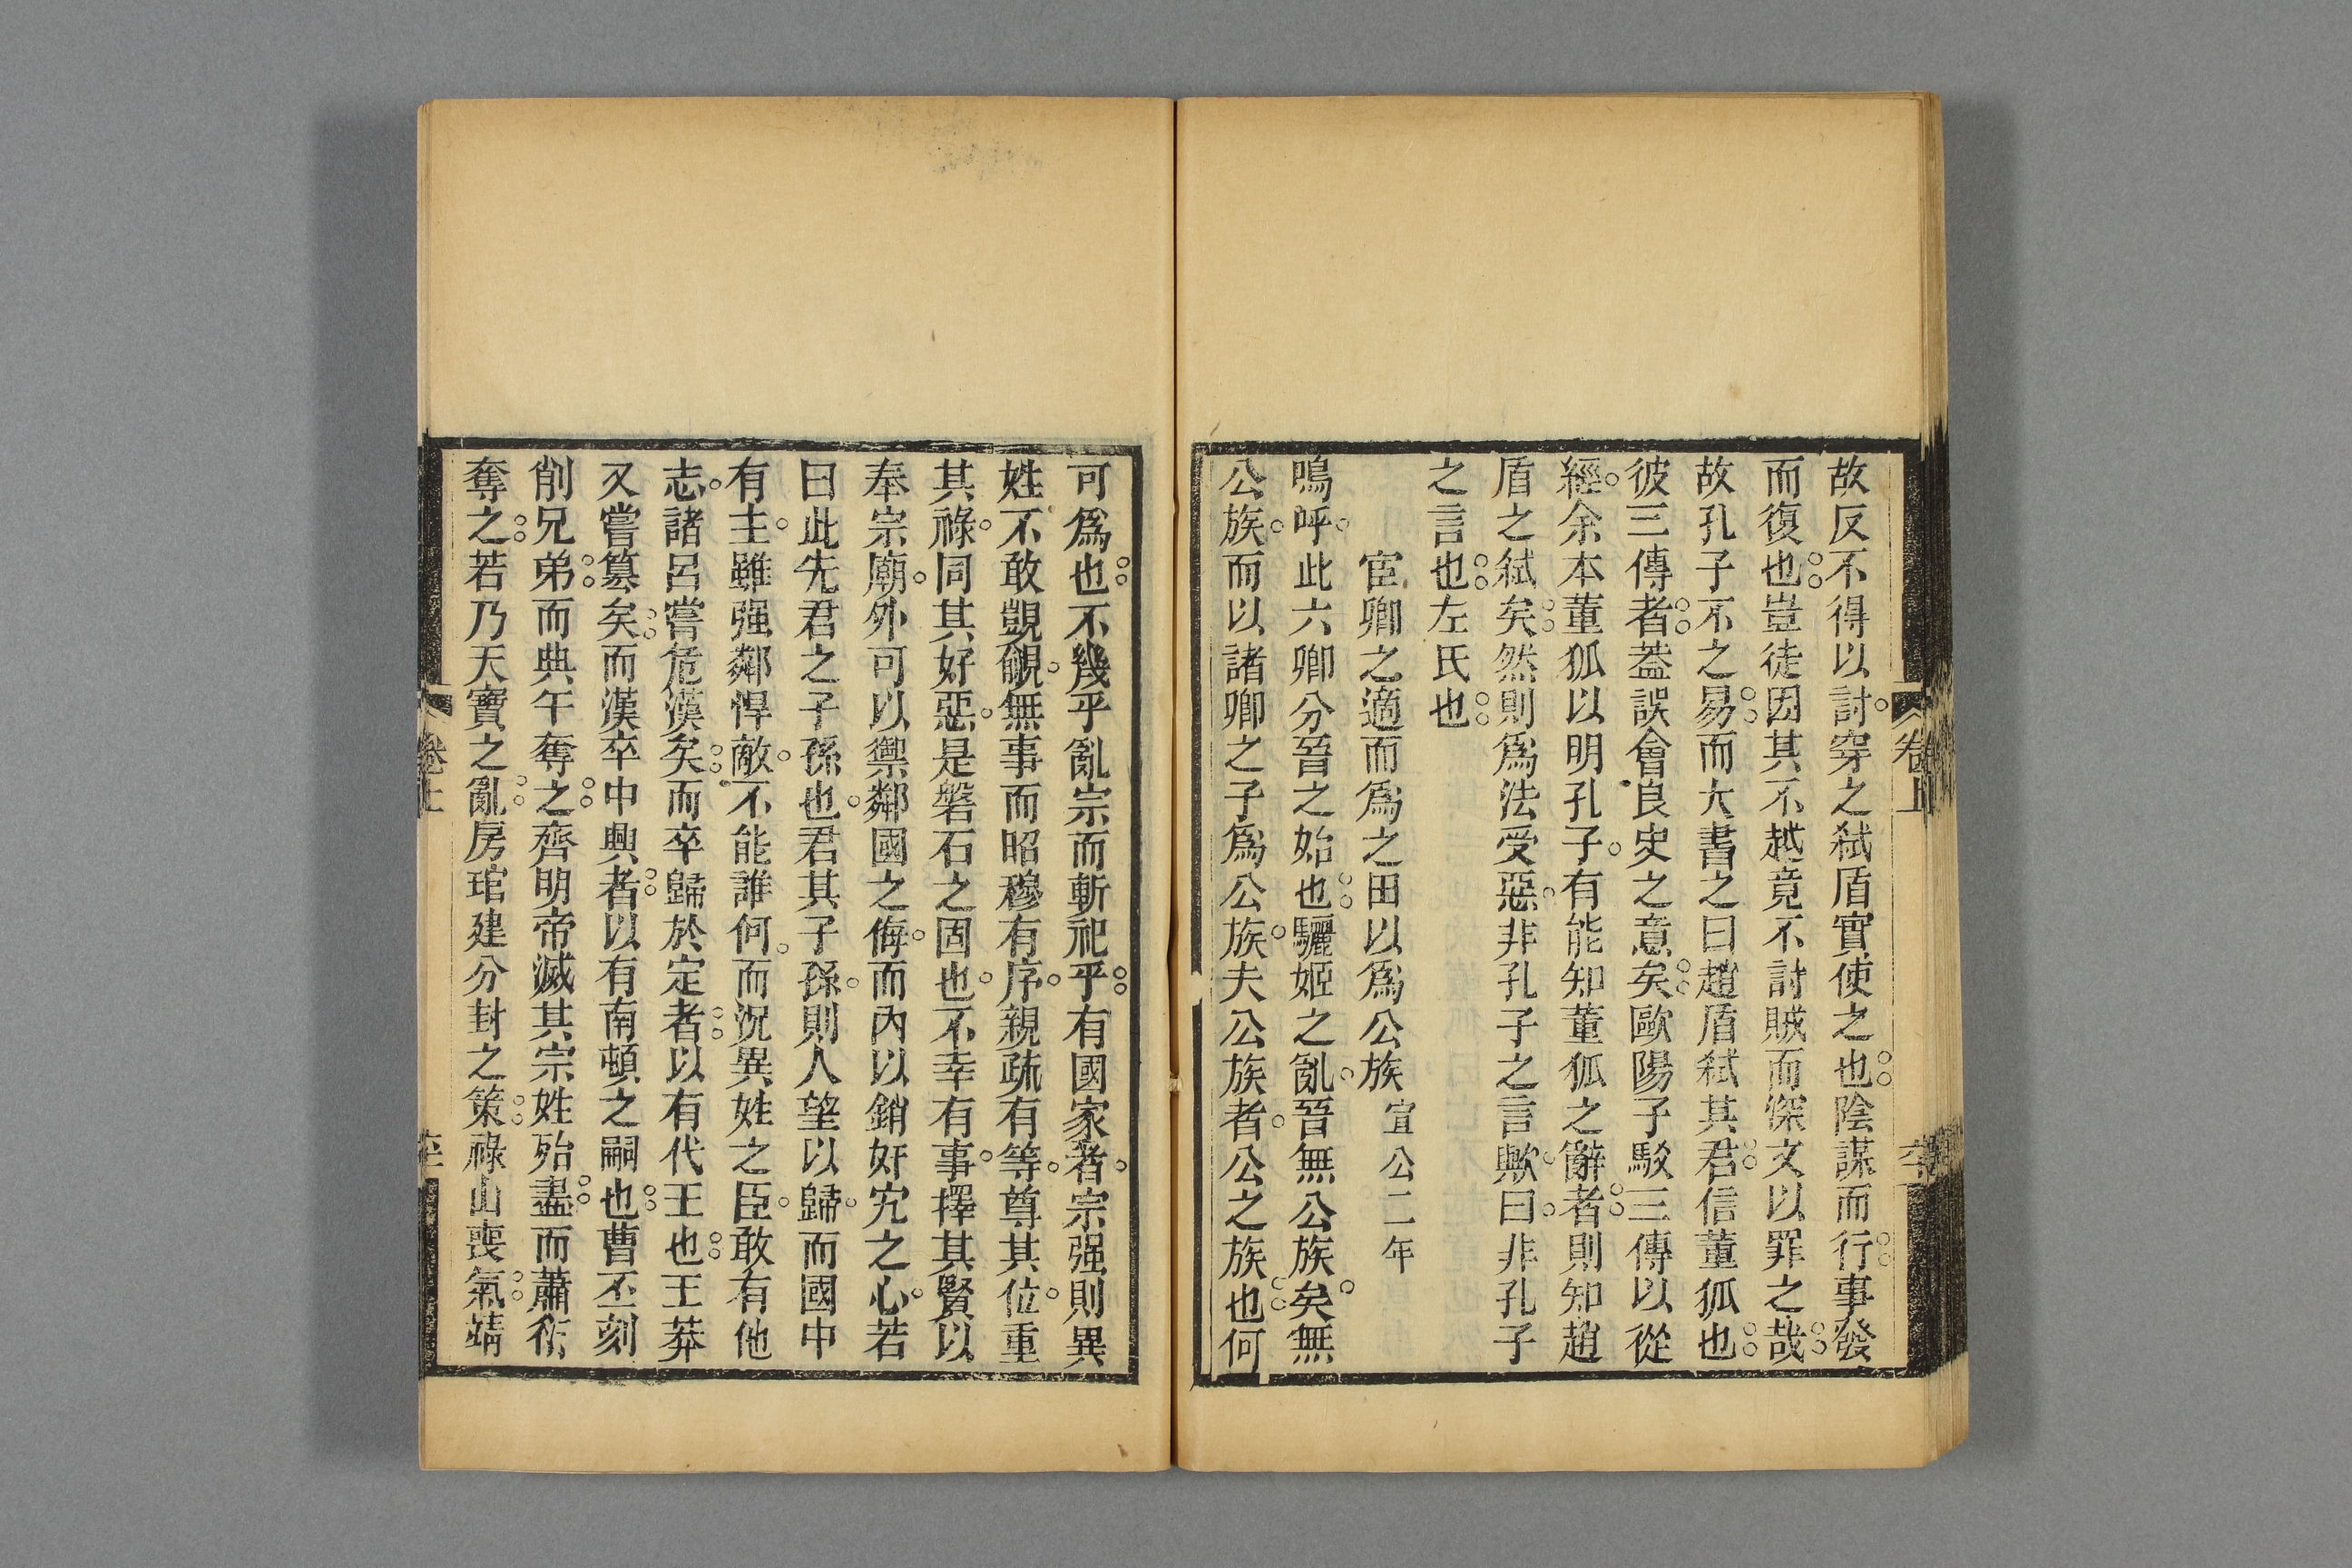 故反不得以討穿之弑盾實使之也陰謀而行事發
而復也豈徒因其不越竟不討賊而深文以罪之哉
故孔子不之易而大書之曰趙盾弑其君信董狐也
彼三傳者葢誤會良史之意矣歐陽子駁三傳以從
經余本董狐以明孔子有能知董狐之辭者則知趙
盾之弑矣然則爲法受惡非孔子之言歟曰非孔子
之言也左氏也
宦卿之適而爲之田以爲公族宣公二年
嗚呼此六卿分晉之始也驪姬之亂晉無公族矣無
公族而以諸卿之子爲公族夫公族者公之族也何
卷上
可爲也不幾乎亂宗而斬祀乎有國家者宗强則異
姓不敢覬覦無事而昭穆有序親疏有等尊其位重
其祿同其好惡是磐石之固也不幸有事擇其賢以
奉宗廟外可以禦鄰國之侮而內以銷奸宄之心若
曰此先君之子孫也君其子孫則人望以歸而國中
有主雖强鄰悍敵不能誰何而況異姓之臣敢有他
志諸呂嘗危漢矣而卒歸於定者以有代王也王莽
又嘗篡矣而漢卒中興者以有南頓之嗣也曹丕刻
削兄弟而典午奪之齊明帝滅其宗姓殆盡而蕭衍
奪之若乃天寶之亂房琯建分封之策祿山喪氣靖
卷上